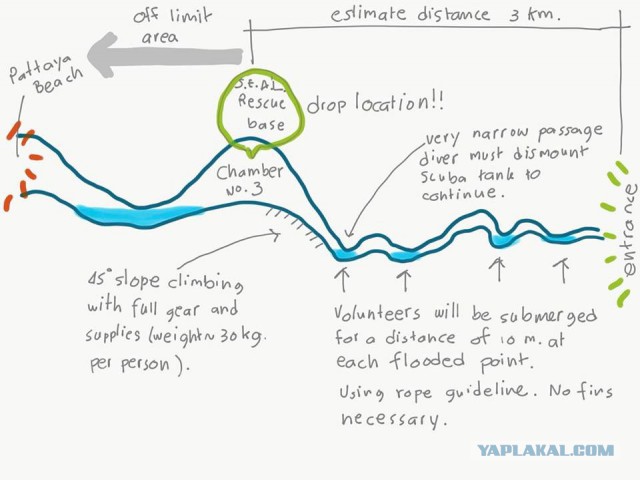 off limit
area
estimate distance 3 km.
Pattaya
Beach
S.E.A.L.
Rescue
base
drop location!!
Chamber
No. 3
very narrow passage
diver must dismount
scuba tank to
continue.
entrance
45° slope climbing
with full gear and
supplies (weight ~ 30 kg.
per person).
Volunteers will be submerged
for a distance of 10 m. at
each flooded point.
Using rope guideline. No fins
necessary.
YAPLAKAL.COM